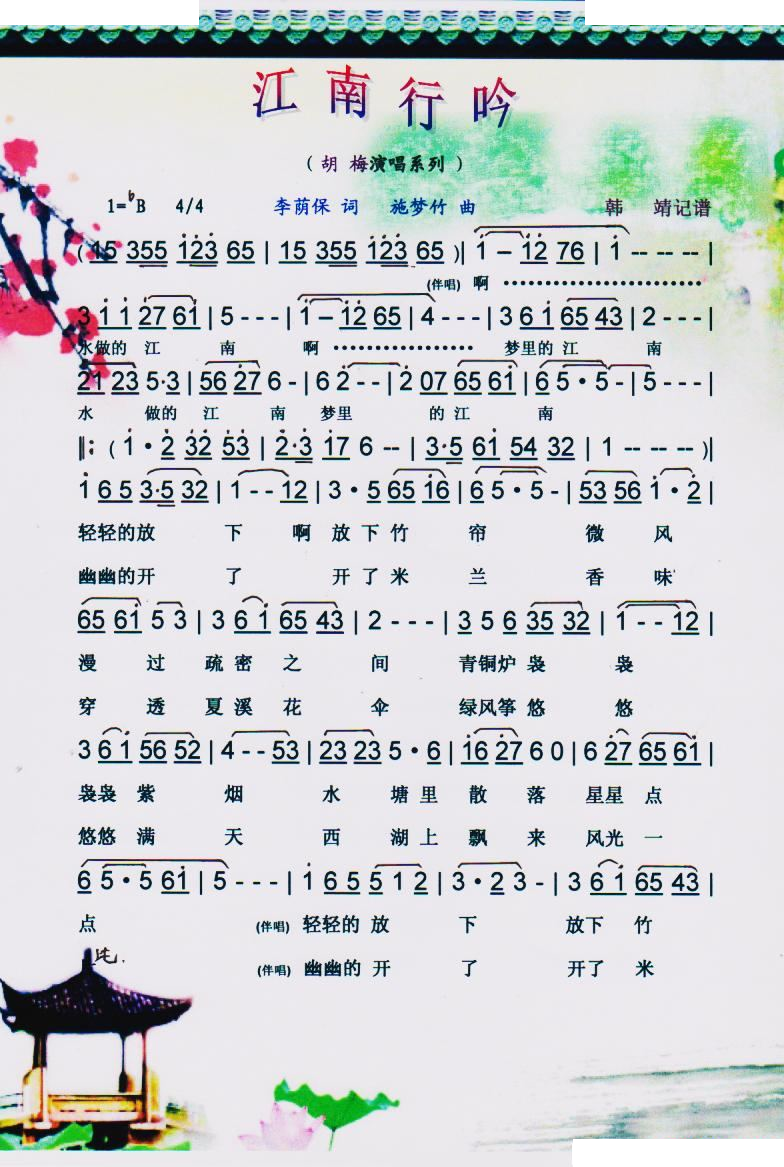 江南行吟
（胡 梅演唱系列）
1=ᵇB 4/4 李荫保 词 施梦竹 曲 韩 靖记谱
( 15 355 123 65 | 15 355 123 65 )| 1 – 12 76 | 1 -- -- -- |
(伴唱) 啊 ••••••••••••••••••••••••
3 1 1 27 61 | 5 - - - | 1 – 12 65 | 4 - - - | 3 6 1 65 43 | 2 - - - |
水做的 江 南 啊 ••••••••••••••••• 梦里的 江 南
21 23 5·3 | 56 27 6 - | 6 2 - - | 2 07 65 61 | 6 5 • 5 - | 5 - - - |
水 做的 江 南 梦里 的 江 南
‖: ( 1 • 2 32 53 | 2·3 17 6 -- | 3·5 61 54 32 | 1 -- -- -- )|
1 6 5 3·5 32 | 1 - - 12 | 3 • 5 65 16 | 6 5 • 5 - | 53 56 1 • 2 |
轻轻的放 下 啊 放 下 竹 帘 微 风
幽幽的开 了 开 了 米 兰 香 味
65 61 5 3 | 3 6 1 65 43 | 2 - - - | 3 5 6 35 32 | 1 - - 12 |
漫 过 疏 密 之 间 青铜炉 袅 袅
穿 透 夏 溪 花 伞 绿风筝 悠 悠
3 6 1 56 52 | 4 - - 53 | 23 23 5 • 6 | 16 27 6 0 | 6 27 65 61 |
袅袅 紫 烟 水 塘 里 散 落 星星 点
悠悠 满 天 西 湖 上 飘 来 风光 一
6 5 • 5 61 | 5 - - - | 1 6 5 5 1 2 | 3 • 2 3 - | 3 6 1 65 43 |
点 (伴唱) 轻轻的 放 下 放下 竹
(伴唱) 幽幽的 开 了 开了 米